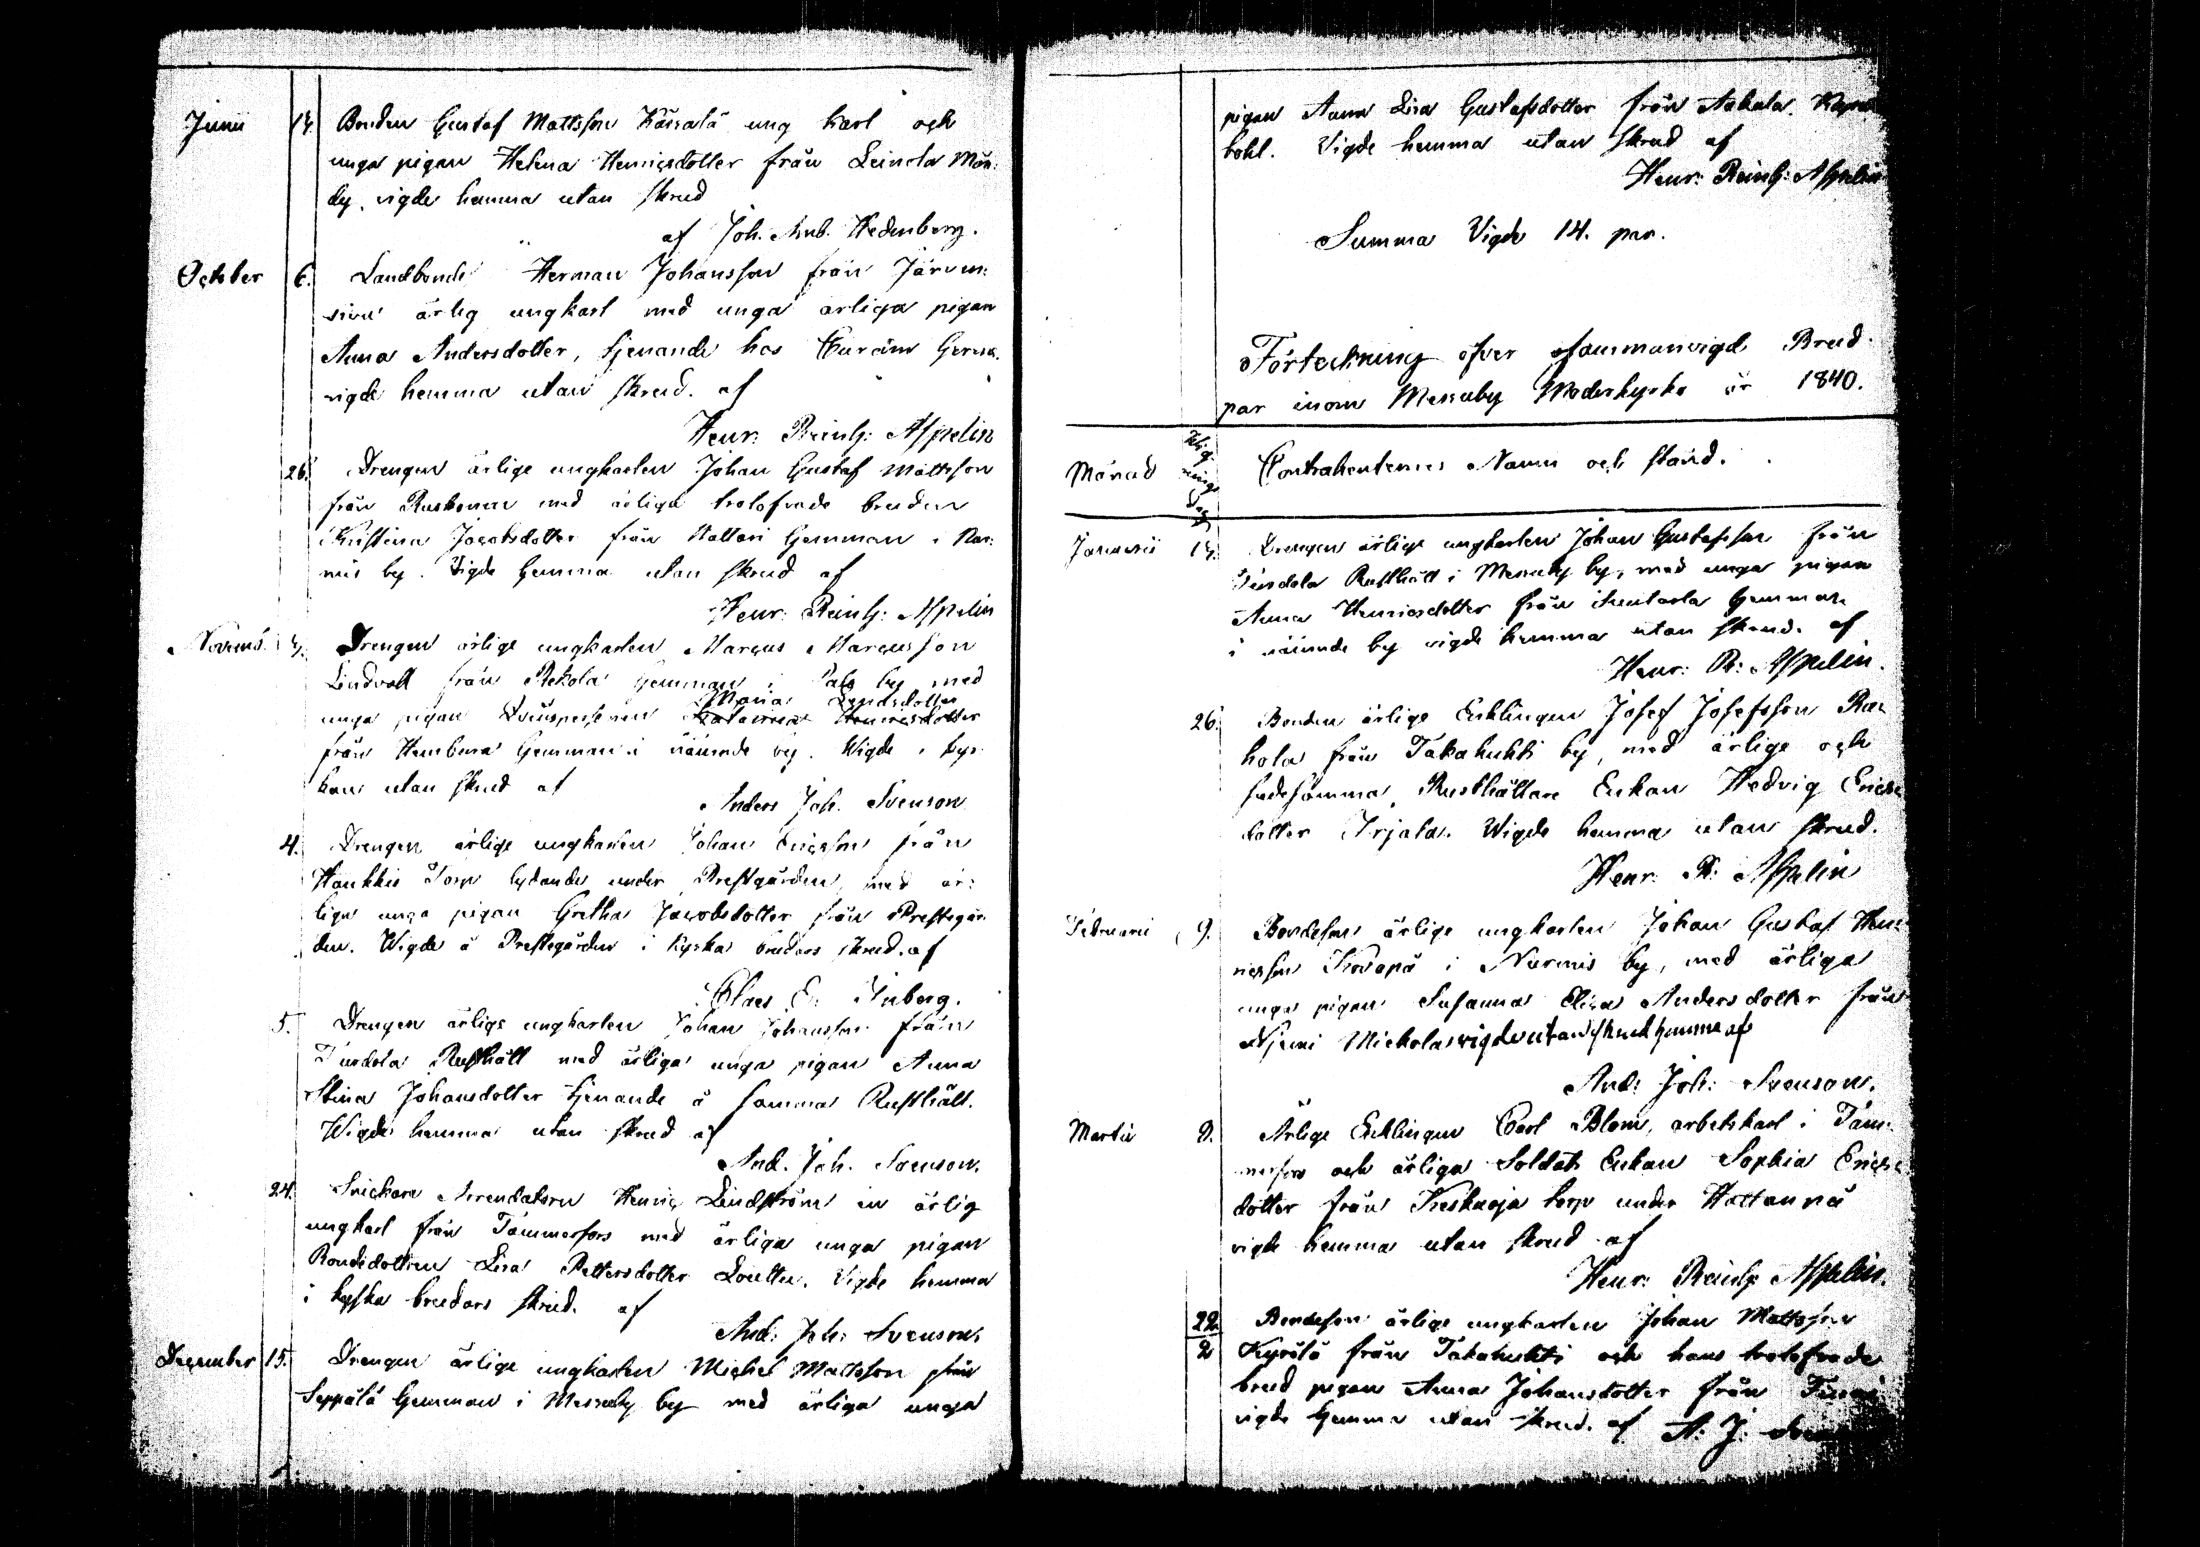 Junii 14. Bonden Gustaf Mattsson Kässälä ung karl och
unga pigan Helena Henricsdotter från Leinola Mön:
by, vigde hemma utan skrud
af Joh. Amb. Hedenberg.
October 6. Landbonde Herman Johansson från Järven:
sivu ärlig ungkarl med unga ärliga pigan
Anna Andersdotter, tjenande hos
vigde hemma utan skrud. af
Henr: Reinh: Aspelin
26. Drengen ärlige ungkarlen Johan Gustaf Mattsson
från Ruskonen med ärliga trolofvade bruden
Kristina Jacobsdotter från Hattari hemman i Nur:
mis by. Vigde hemma utan skrud af
Henr: Reinh: Aspelin
Novemb. 4. Drengen ärlige ungkarlen Marcus Marcusson
Lindvall från Rekola hemman i by med
Maria
unga pigan Henricsdotter
från hemman i nämnde by. Wigde i kyr
kan utan skrud af
Anders Joh. Svenson
4. Drengen ärlige ungkarlen Johan Ericsson från
Haukkis Torp lydande under Prestgården, med är:
liga unga pigan Gretha Jacobsdotter från Prestegår
den. Wigde å Prestegården i kyska brudars skrud. af
Claes E. Inberg.
5. Drengen ärlige ungkarlen Johan Johansson från
Turdola Rusthåll med ärliga unga pigan Anna
Stina Johansdotter tjenande å samma Rusthåll.
Wigde hemma utan skrud af
And. Joh. Svenson.
24. Snickare Arrendatorn Henric Lindström en ärlig
ungkarl från Tammerfors med ärliga unga pigan
Bondedottren Lisa Pettersdotter Vigde hemma
i kyska brudars skrud. af
And: Joh: Svenson.
December 15. Drengen ärlige ungkarlen Michel Mattsson från
Seppälä hemman i Messuby by med ärliga unga
pigan Anna Lisa Gustafsdotter från Aakala
bohl. Vigde hemma utan skrud af
Henr: Reinh: Aspelin
Summa Vigde 14. par.
Förteckning öfver sammanvigde Brud
par inom Messuby Moderkyrka år 1840.
Månad Wig
nings
Dag Contrahenternes Namn och stånd.
Januarii 14. Drengen ärlige ungkarlen Johan Gustafsson från
Turdola Rusthåll i Messuby by, med unga pigan
Anna Henricsdotter från hemman
i nämnde by vigde hemma utan skrud. af
Henr: R: Aspelin.
26. Bonden ärlige Enklingen Josef Josefsson Ra:
hola från Takahuhti by, med ärlige och
sedesamma Rusthållare Enkan Hedvig Erics
dotter Irjala. Wigde hemma utan skrud.
Henr: R: Aspelin
Februarii 9. Bondeson ärlige ungkarlen Johan Gustaf Hen
ricsson Kovapä i Nurmis by, med ärliga
unga pigan Susanna Elisa Andersdotter från
Niemi Mickola vigde utan skrud hemma af
And: Joh: Svenson.
Martii 9. Ärlige Enklingen Carl Blom, arbetskarl i Tam:
merfors och ärliga Soldats Enkan Sophia Erics
dotter från Keskuoja torp under Hattanpä
vigde hemma utan skrud af
Henr: Reinh: Aspelin.
22 Bondeson ärlige ungkarlen Johan Mattsson
2 Kyrölä från Takahuhti och hans trolofvade
brud pigan Anna Johansdotter från
vigde hemma utan skrud. af A: J: